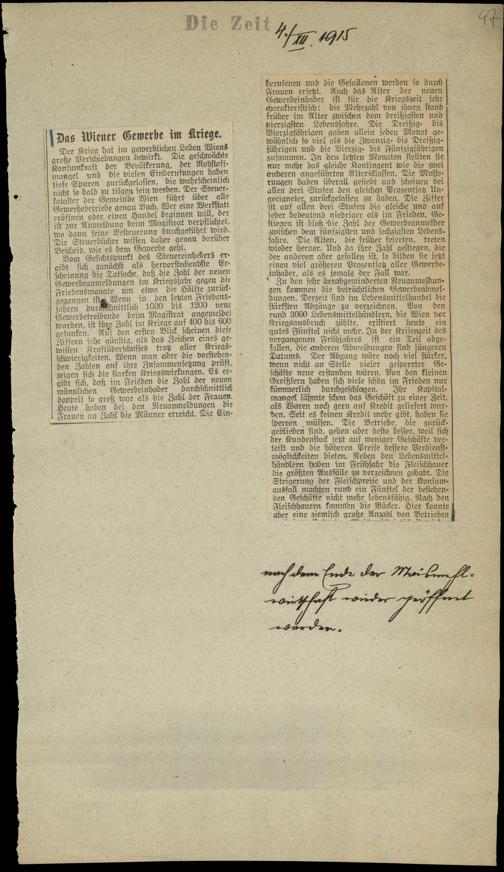 Die Zeit
4./XII. 1915
47
Das Wiener Gewerbe im Kriege.
Der Krieg hat im gewerblichen Leben Wiens
große Verschiebungen bewirkt. Die geschwächte
Konsumkraft der Bevölkerung, der Rohstoff-
mangel und die vielen Einberufungen haben
tiefe Spuren zurückgelassen, die wahrscheinlich
nicht so bald zu tilgen sein werden. Der Steuer-
kataster der Gemeinde Wien führt über alle
Gewerbebetriebe genau Buch. Wer eine Werkstatt
eröffnen oder einen Handel beginnen will, der
ist zur Anmeldung beim Magistrat verpflichtet,
wo dann seine Besteuerung durchgeführt wird.
Die Steuerbücher wissen daher genau darüber
Bescheid, wie es dem Gewerbe geht.
Vom Gesichtspunkt des Steuereinhebers er-
gibt sich zunächst als hervorstechendste Er-
scheinung die Tatsache, daß die Zahl der neuen
Gewerbeanmeldungen im Kriegsjahr gegen die
Friedensmonate um etwa die Hälfte zurück-
gegangen ist. Wenn in den letzten Friedens-
jahren durchschnittlich 1000 bis 1200 neue
Gewerbetreibende beim Magistrat angemeldet
wurden, ist ihre Zahl im Krieg auf 400 bis 600
gesunken. Auf den ersten Blick scheinen diese
Ziffern sehr günstig, als das Zeichen eines ge-
wissen Kraftüberschusses trotz aller Kriegs-
schwierigkeiten. Wenn man aber die vorstehen-
den Zahlen auf ihre Zusammensetzung prüft,
zeigen sich die starken Kriegswirkungen. Es er-
gibt sich, daß im Frieden die Zahl der neuen
männlichen Gewerbeinhaber durchschnittlich
doppelt so groß war als die Zahl der Frauen.
Heute haben bei den Neuanmeldungen die
Frauen an Zahl die Männer erreicht. Die Ein-
berufenen und die Gefallenen werden so durch
Frauen ersetzt. Auch das Alter der neuen
Gewerbeinhaber ist für die Kriegszeit sehr
charakteristisch: die Mehrzahl von ihnen stand
früher im Alter zwischen dem dreißigsten und
vierzigsten Lebensjahre. Die Dreißig- bis
Vierzigjährigen gaben allein jeden Monat ge-
wöhnlich so viel als die Zwanzig- bis Dreißig-
jährigen und die Vierzig- bis Fünfzigjährigen
zusammen. In den letzten Monaten stellten sie
nur mehr das gleiche Kontingent wie die zwei
anderen angeführten Altersklassen. Die Muste-
rungen haben überall gesiebt und scheinen bei
allen drei Stufen den gleichen Prozentsatz Un-
geeigneter, zurückgelassen zu haben. Die Ziffer
ist auf allen drei Stufen die gleiche und auf
jeder bedeutend niedriger als im Frieden. Ge-
stiegen ist bloß die Zahl der Gewerbeanmelder
zwischen dem fünfzigsten und sechzigsten Lebens-
jahre. Die Alten, die früher feierten, treten
wieder hervor. Und da ihre Zahl gestiegen, die
der anderen aber gefallen ist, so bilden sie jetzt
einen viel größeren Prozentsatz aller Gewerbe-
inhaber, als es jemals der Fall war.
Zu den sehr herabgeminderten Neuanmeldun-
gen kommen die beträchtlichen Gewerbeabmel-
dungen. Derzeit sind im Lebensmittelhandel die
stärksten Abgänge zu verzeichnen. Von den
rund 3000 Lebensmittelhändlern, die Wien vor
Kriegsausbruch zählte, existiert heute ein
gutes Fünftel nicht mehr. In der Krisenzeit des
vergangenen Frühjahres ist ein Teil abge-
fallen, die anderen Abmeldungen sind jüngeren
Datums. Der Abgang wäre noch viel stärker,
wenn nicht an Stelle vieler gesperrter Ge-
schäfte neue erstanden wären. Von den kleinen
Greißlern haben sich viele schon im Frieden nur
kümmerlich durchgeschlagen. Ihr Kapital-
mangel lähmte schon das Geschäft zu einer Zeit,
als Waren noch gern auf Kredit geliefert wur-
den. Seit es keinen Kredit mehr gibt, haben sie
sperren müssen. Die Betriebe, die zurück-
geblieben sind, gehen aber desto besser, weil sich
der Kundenstock jetzt auf weniger Geschäfte ver-
teilt und die höheren Preise bessere Verdienst-
möglichkeiten bieten. Neben den Lebensmittel-
händlern haben im Frühjahr die Fleischhauer
die größten Ausfälle zu verzeichnen gehabt. Die
Steigerung der Fleischpreise und der Konsum-
ausfall machten rund ein Fünftel der bestehen-
den Geschäfte nicht mehr lebensfähig. Nach den
Fleischhauern kommen die Bäcker. Hier konnte
aber eine ziemlich große Anzahl von Betrieben
nach dem Ende der Maismehl-
wirtschaft wieder geöffnet
werden.